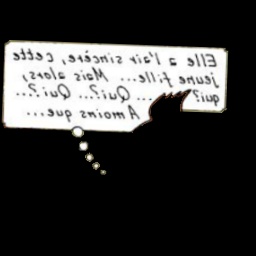 Elle a l'air sincère, cette
jeune fille... Mais alors,
qui? ... Qui?... Qui?...
A moins que...